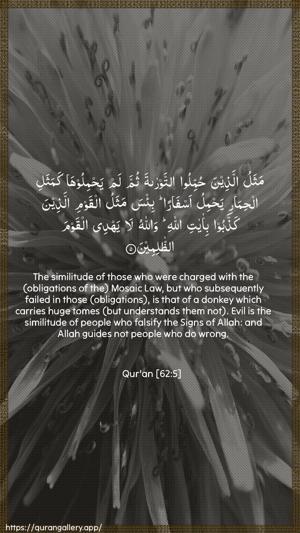 مَثَلُ الَّذِيْنَ حُمِّلُوا التَّوْرٰىةَ ثُمَّ لَمْ يَحْمِلُوْهَا كَمَثَلِ
الْحِمَارِ يَحْمِلُ اَسْفَارًا ؕ بِئْسَ مَثَلُ الْقَوْمِ الَّذِيْنَ
كَذَّبُوْا بِاٰيٰتِ اللّٰهِ ؕ وَاللّٰهُ لَا يَهْدِى الْقَوْمَ
الظّٰلِمِيْنَ ۝٥
The similitude of those who were charged with the
(obligations of the) Mosaic Law, but who subsequently
failed in those (obligations), is that of a donkey which
carries huge tomes (but understands them not). Evil is the
similitude of people who falsify the Signs of Allah: and
Allah guides not people who do wrong.
Qur'an [62:5]
https://qurangallery.app/